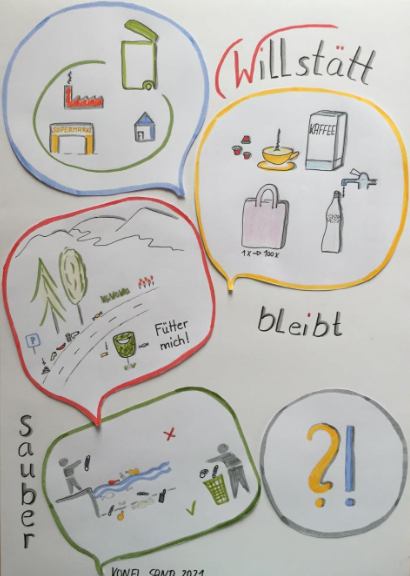 Willstätt
SUPERMARKT
KAFFEE
1x → 100x
bleibt
P
Fütter
mich!
sauber
?!
2021